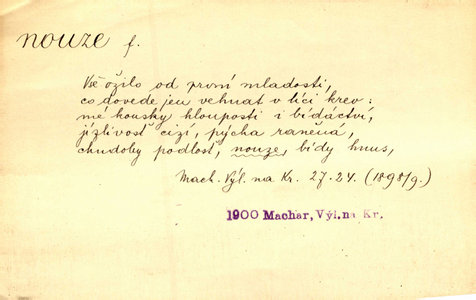 nouze f.
Vše ožilo od první mladosti,
co dovede jen vehnat v líci krev:
mé kousky hlouposti i bídáctví,
jízlivost cizí, pýcha raněná,
chudoby podlost, nouze, bídy hnus,
Mach. Výl. na Kr. 27.24. (1898/9.)
1900 Machar, Výl. na Kr.